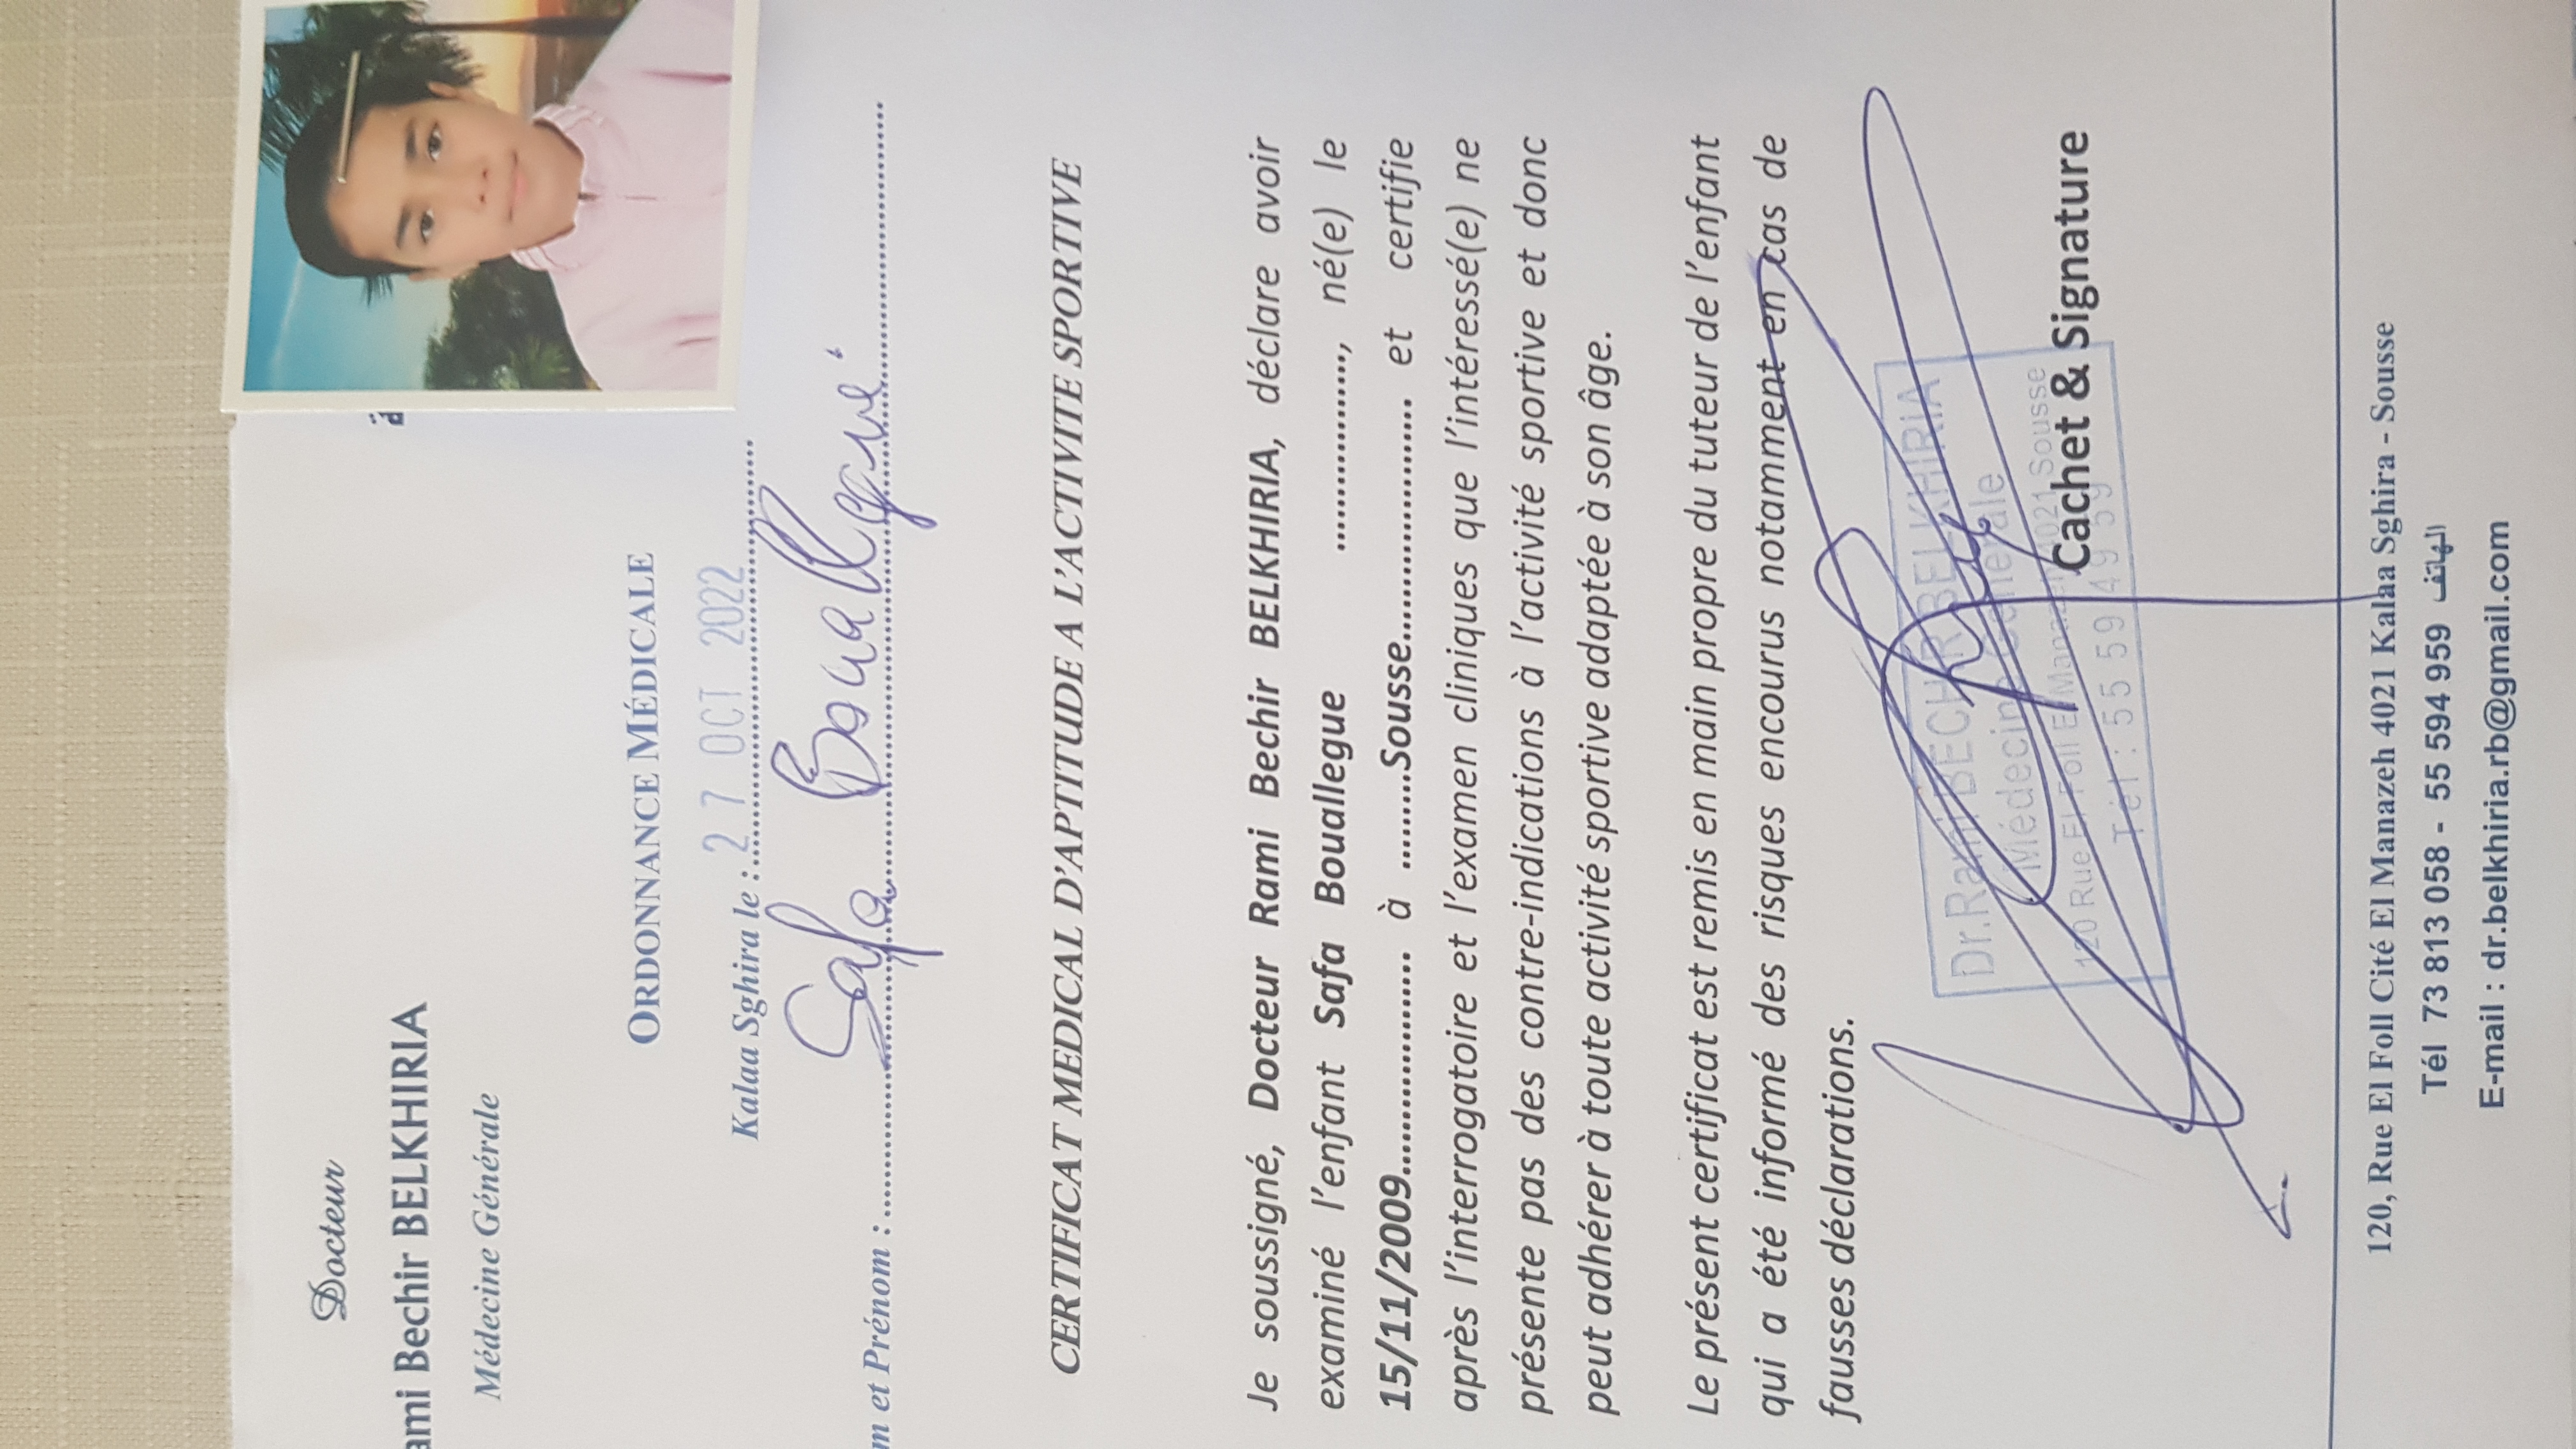 Docteur
ami Bechir BELKHIRIA
Médecine Générale
ORDONNANCE MÉDICALE
Kalaa Sghira le : 27 OCT 2022
m et Prénom : Safa Bouallegue
CERTIFICAT MEDICAL D'APTITUDE A L'ACTIVITE SPORTIVE
Je soussigné, Docteur Rami Bechir BELKHIRIA, déclare avoir
examiné l'enfant Safa Bouallegue ..................., né(e) le
15/11/2009..................... à .........Sousse..................... et certifie
après l'interrogatoire et l'examen cliniques que l'intéressé(e) ne
présente pas des contre-indications à l'activité sportive et donc
peut adhérer à toute activité sportive adaptée à son âge.
Le présent certificat est remis en main propre du tuteur de l'enfant
qui a été informé des risques encourus notamment en cas de
fausses déclarations.
Dr.Rami BECHIR BELKHIRIA
Médecine Générale
120 Rue El Foll El Manazeh 4021 Sousse
Tél : 55 594 959
Cachet & Signature
120, Rue El Foll Cité El Manazeh 4021 Kalaa Sghira - Sousse
Tél 73 813 058 - 55 594 959 الهاتف
E-mail : dr.belkhiria.rb@gmail.com